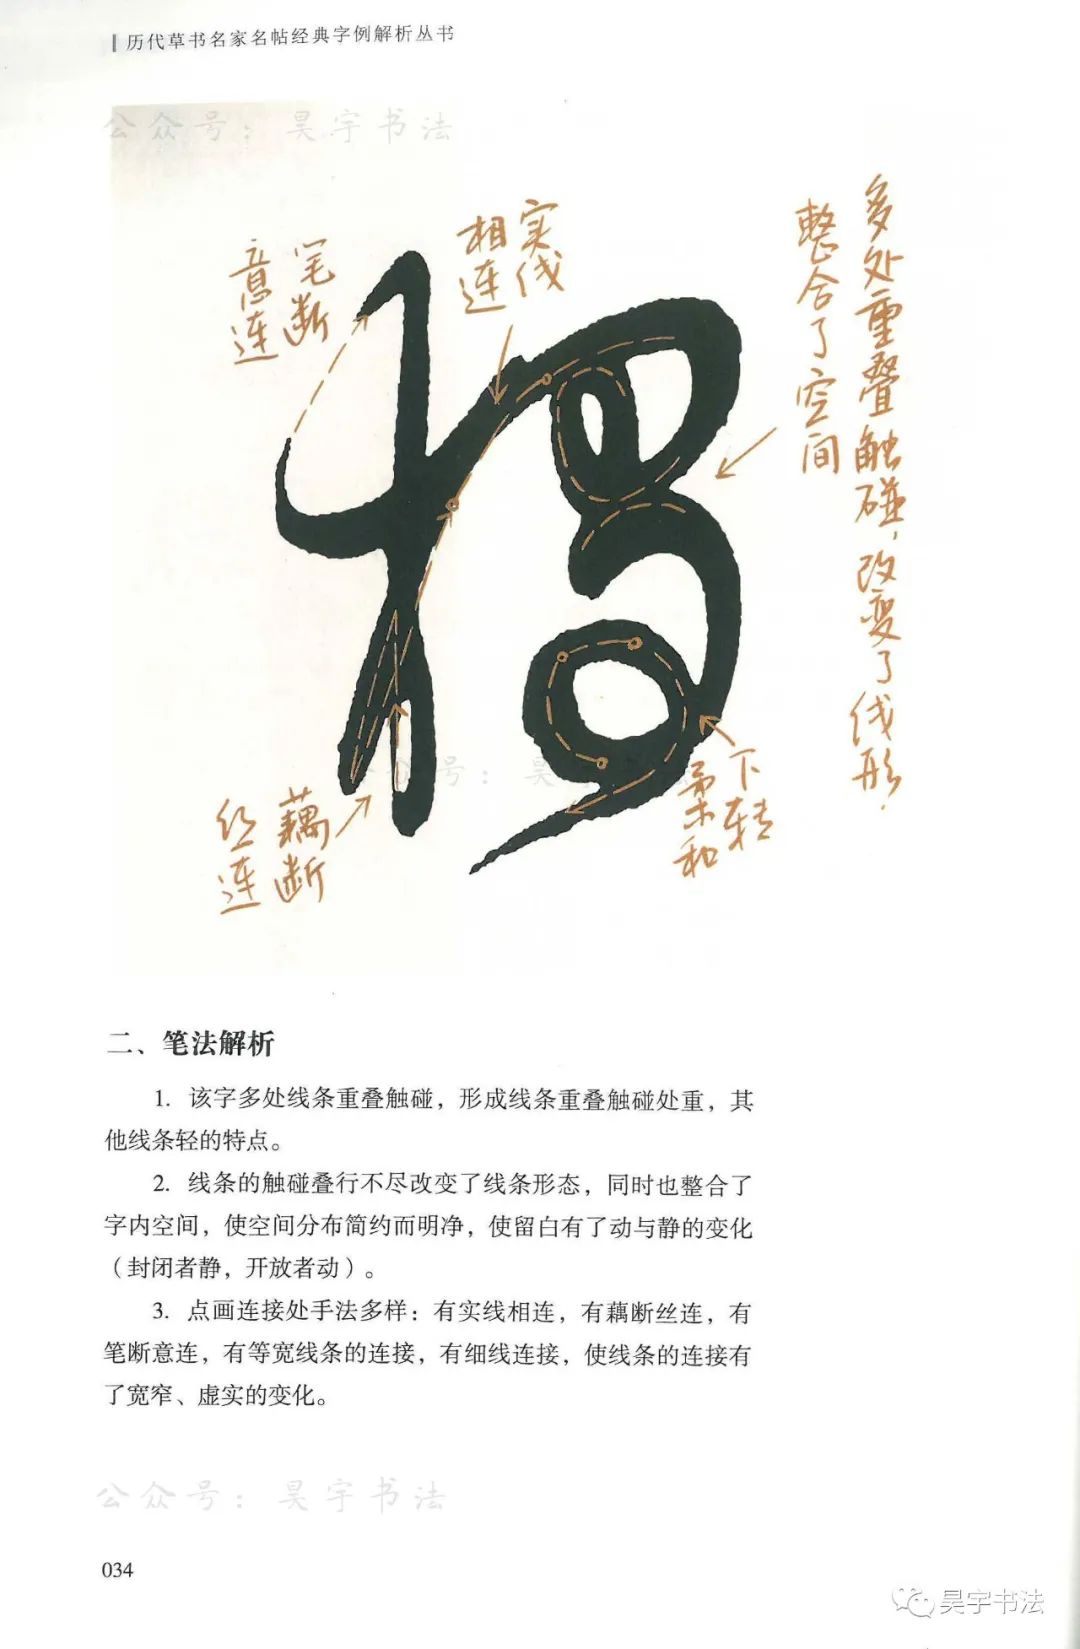 历代草书名家名帖经典字例解析丛书
公众号：昊宇书法
笔断
意连
实线
相连
多处重叠触碰，改变了线形，
整合了空间
藕断
丝连
下转
柔和
公众号：昊宇书法
二、笔法解析
1. 该字多处线条重叠触碰，形成线条重叠触碰处重，其
他线条轻的特点。
2. 线条的触碰叠行不尽改变了线条形态，同时也整合了
字内空间，使空间分布简约而明净，使留白有了动与静的变化
（封闭者静，开放者动）。
3. 点画连接处手法多样：有实线相连，有藕断丝连，有
笔断意连，有等宽线条的连接，有细线连接，使线条的连接有
了宽窄、虚实的变化。
公众号：昊宇书法
034
昊宇书法